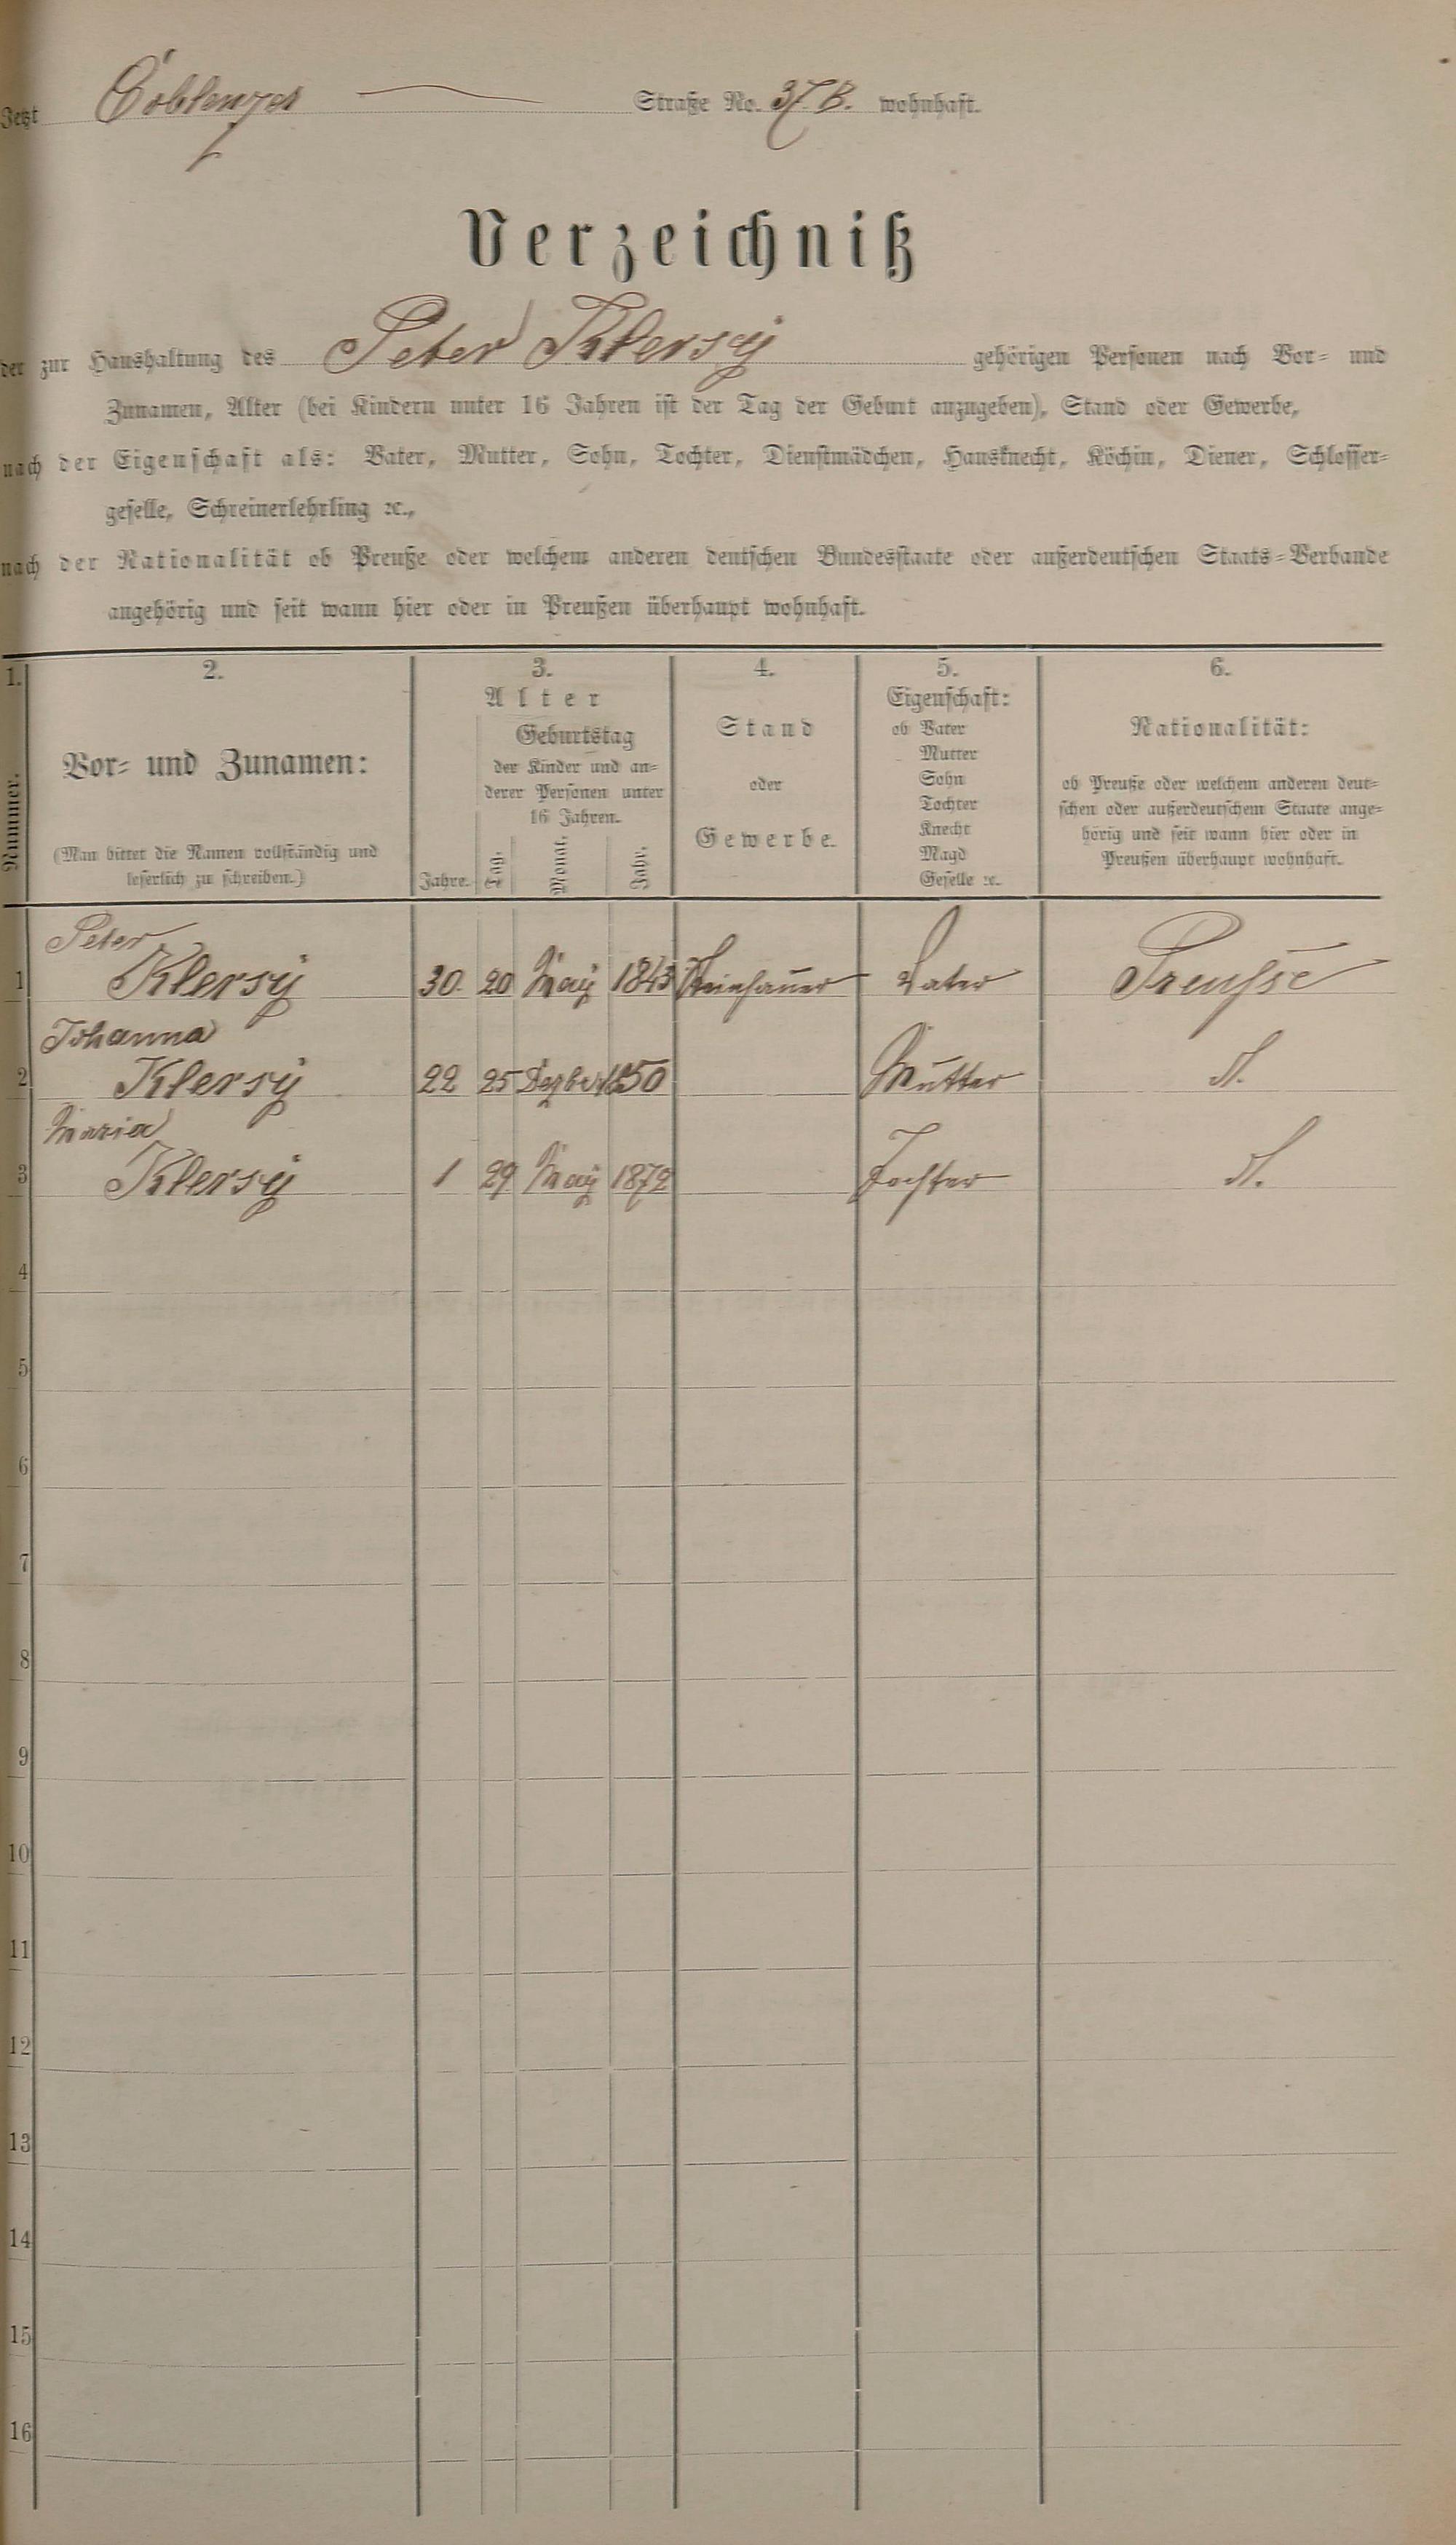 Jetzt Coblenzer Straße No. 37 B. wohnhaft.
Verzeichniß
der zur Haushaltung des Peter Klersÿ gehörigen Personen nach Vor- und
Zunamen, Alter (bei Kindern unter 16 Jahren ist der Tag der Geburt anzugeben), Stand oder Gewerbe,
nach der Eigenschaft als: Vater, Mutter, Sohn, Tochter, Dienstmädchen, Hausknecht, Köchin, Diener, Schlosser-
geselle, Schreinerlehrling ꝛc.,
nach der Nationalität ob Preuße oder welchem anderen deutschen Bundesstaate oder außerdeutschen Staats-Verbande
angehörig und seit wann hier oder in Preußen überhaupt wohnhaft.
1.
Nummer.
2.
Vor- und Zunamen:
(Man bittet die Namen vollständig und
leserlich zu schreiben.)
3.
Alter
Geburtstag
der Kinder und an-
derer Personen unter
16 Jahren.
Jahre. Tag. Monat. Jahr.
4.
Stand
oder
Gewerbe.
5.
Eigenschaft:
ob Vater
Mutter
Sohn
Tochter
Knecht
Magd
Geselle ꝛc.
6.
Nationalität:
ob Preuße oder welchem anderen deut-
schen oder außerdeutschem Staate ange-
hörig und seit wann hier oder in
Preußen überhaupt wohnhaft.
Peter
1 Klersÿ 30. 20 Maÿ 1843 Steinhauer Vater Preusse
Johanna
2 Klersÿ 22 25 Dezber 1850 Mutter d.
Maria
3 Klersÿ 1 29 Maÿ 1872 Tochter d.
4
5
6
7
8
9
10
11
12
13
14
15
16